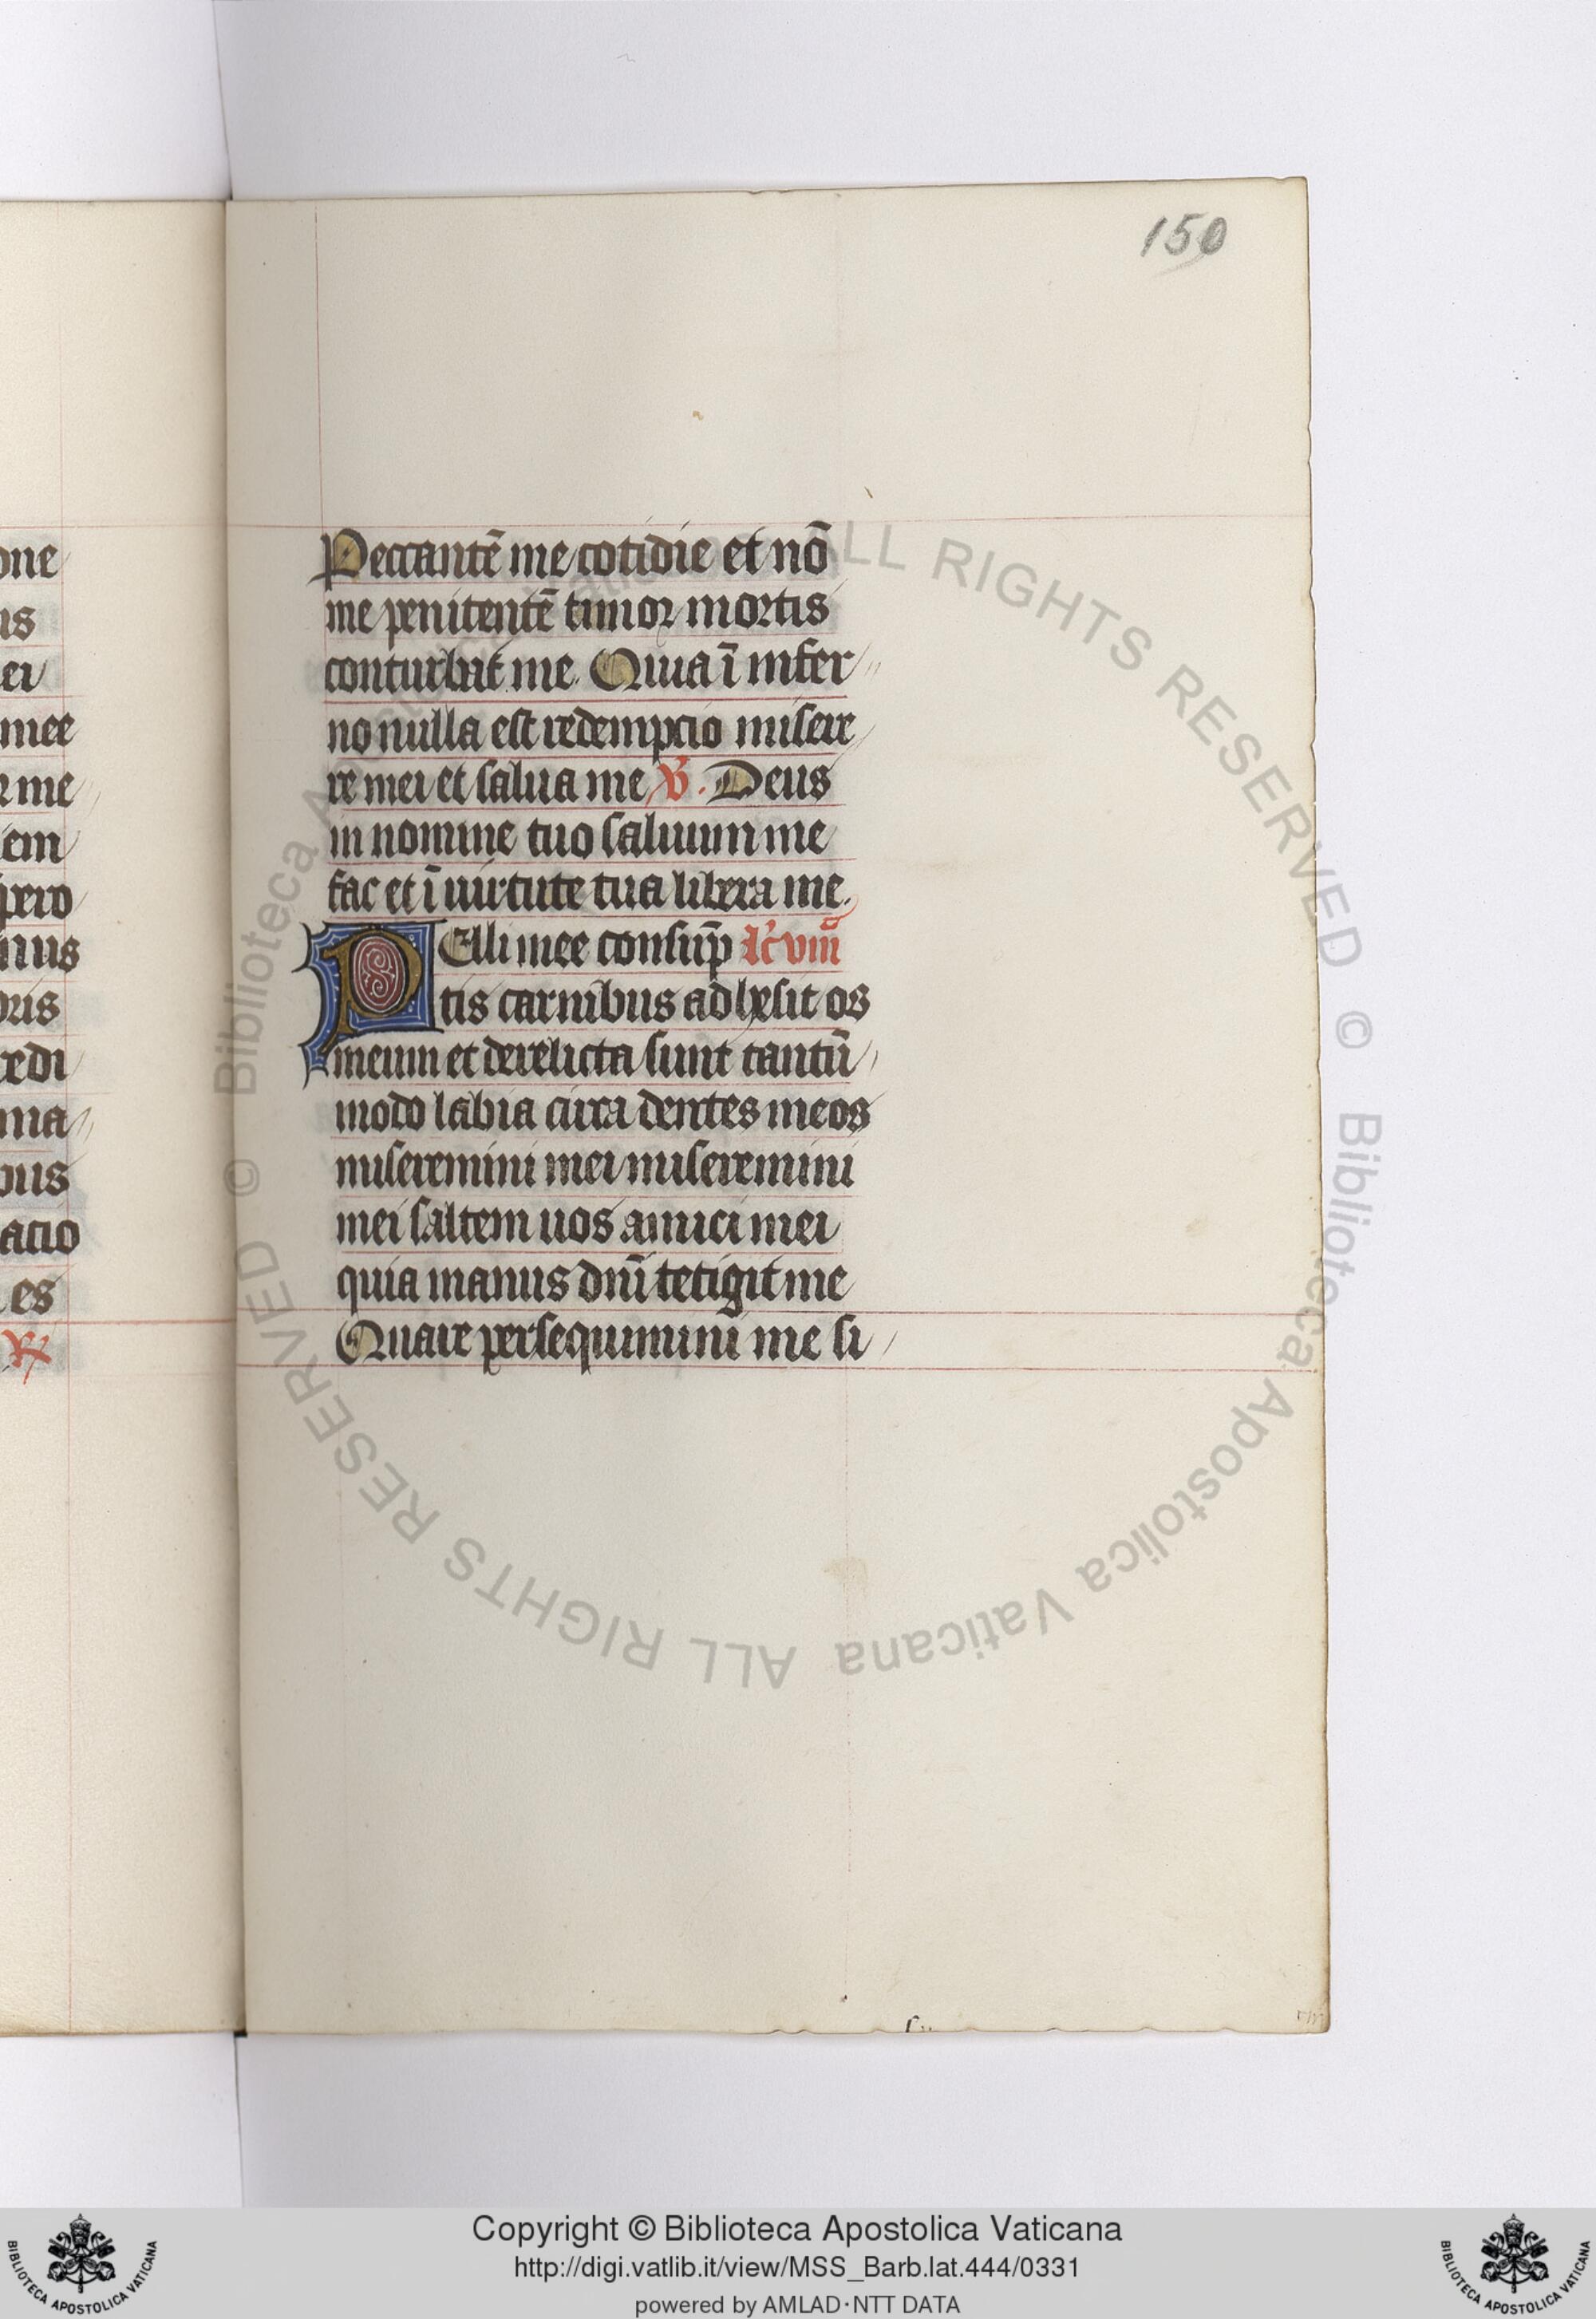 one
us
ei
mee
r me
em
pero
nus
oris
redi
ma
bus
acio
es
℟
150
Peccantē me cotidie et nō
me penitentē timor mortis
conturbat me. Quia ī infer
no nulla est redempcio misere
re mei et salua me ℣. Deus
in nomine tuo saluum me
fac et ī uirtute tua libera me.
PElli mee consūp lc̄ viii
tis carnibus adhesit os
meum et derelicta sunt tantū
modo labia circa dentes meos
miseremini mei miseremini
mei saltem uos amici mei
quia manus dn̄i tetigit me
Quare persequimini me si
© Biblioteca Apostolica Vaticana ALL RIGHTS RESERVED © Biblioteca Apostolica Vaticana ALL RIGHTS RESERVED
Copyright © Biblioteca Apostolica Vaticana
http://digi.vatlib.it/view/MSS_Barb.lat.444/0331
powered by AMLAD·NTT DATA
BIBLIOTECA APOSTOLICA VATICANA
BIBLIOTECA APOSTOLICA VATICANA